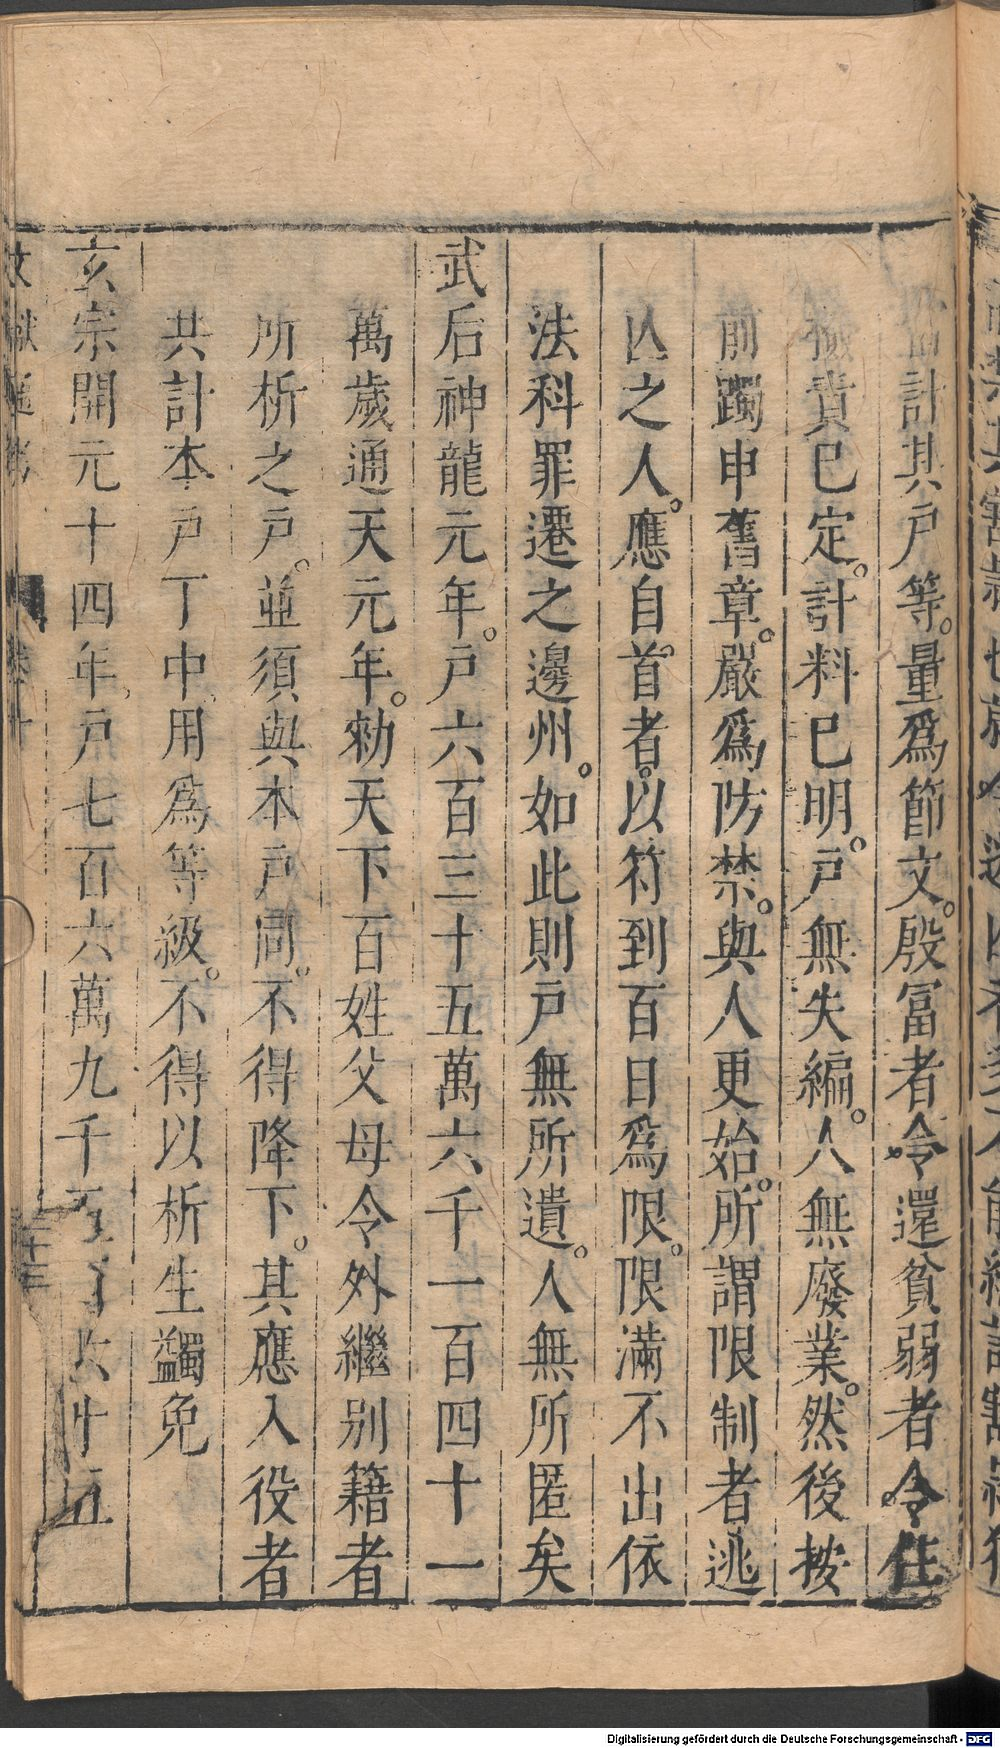 計其戶等。量爲節文。殷富者令還貧弱者令住
檢責已定。計料已明。戶無失編。人無廢業。然後按
前躅申舊章。嚴爲防禁。與人更始。所謂限制者逃
亾之人。應自首者。以符到百日爲限。限滿不出依
法科罪遷之邊州。如此則戶無所遺。人無所匿矣
武后神龍元年。戶六百三十五萬六千一百四十一
萬歲通天元年。勑天下百姓父母令外繼别籍者
所析之戶。並須與本戶同。不得降下。其應入役者
共計本戶丁中用爲等級。不得以析生蠲免
玄宗開元十四年戶七百六萬九千五百六十五
文獻通考
卷十
二十三
Digitalisierung gefördert durch die Deutsche Forschungsgemeinschaft - DFG